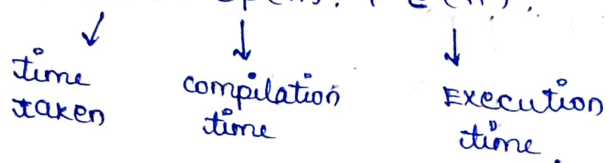 time taken
compilation time
Execution time